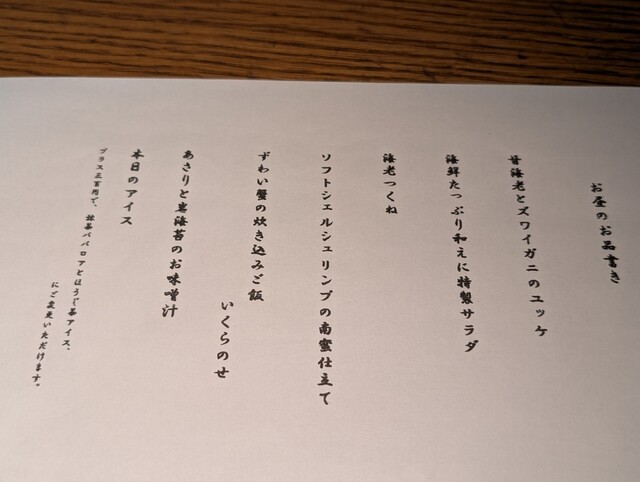 お昼のお品書き
甘海老とズワイガニのユッケ
海鮮たっぷり和えに特製サラダ
海老つくね
ソフトシェルシュリンプの南蛮仕立て
ずわい蟹の炊き込みご飯
いくらのせ
あさりと岩海苔のお味噌汁
本日のアイス
プラス三百円で、抹茶ババロアとほうじ茶アイス、
にご変更いただけます。